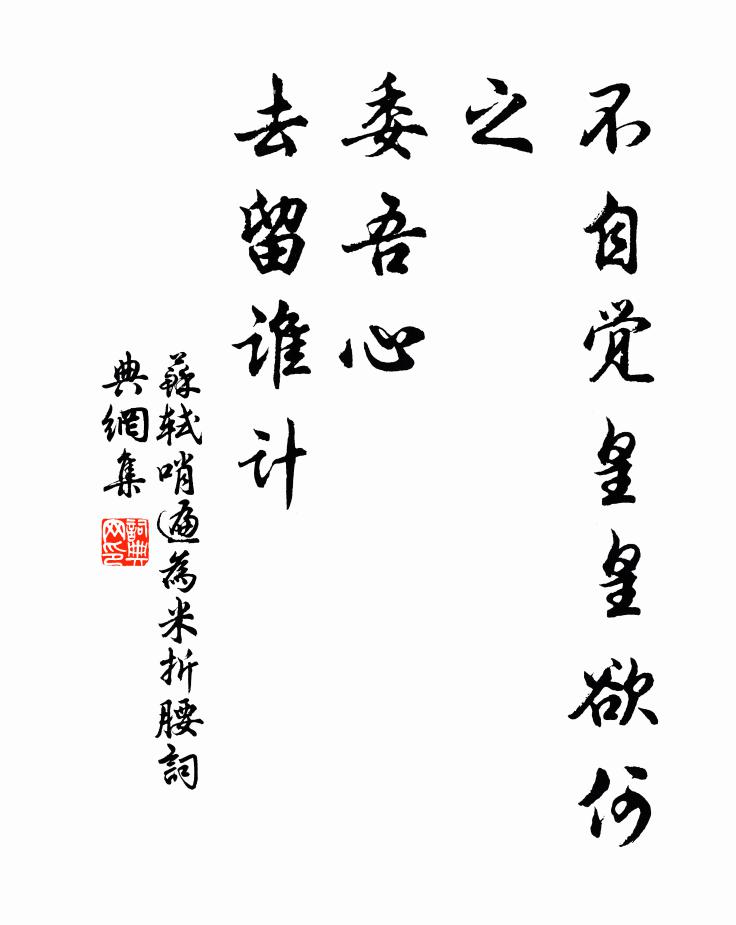 不自觉皇皇欲何
之
委吾心
去留谁计
蘇軾哨遍為米折腰詞
典網集
詞典
网印